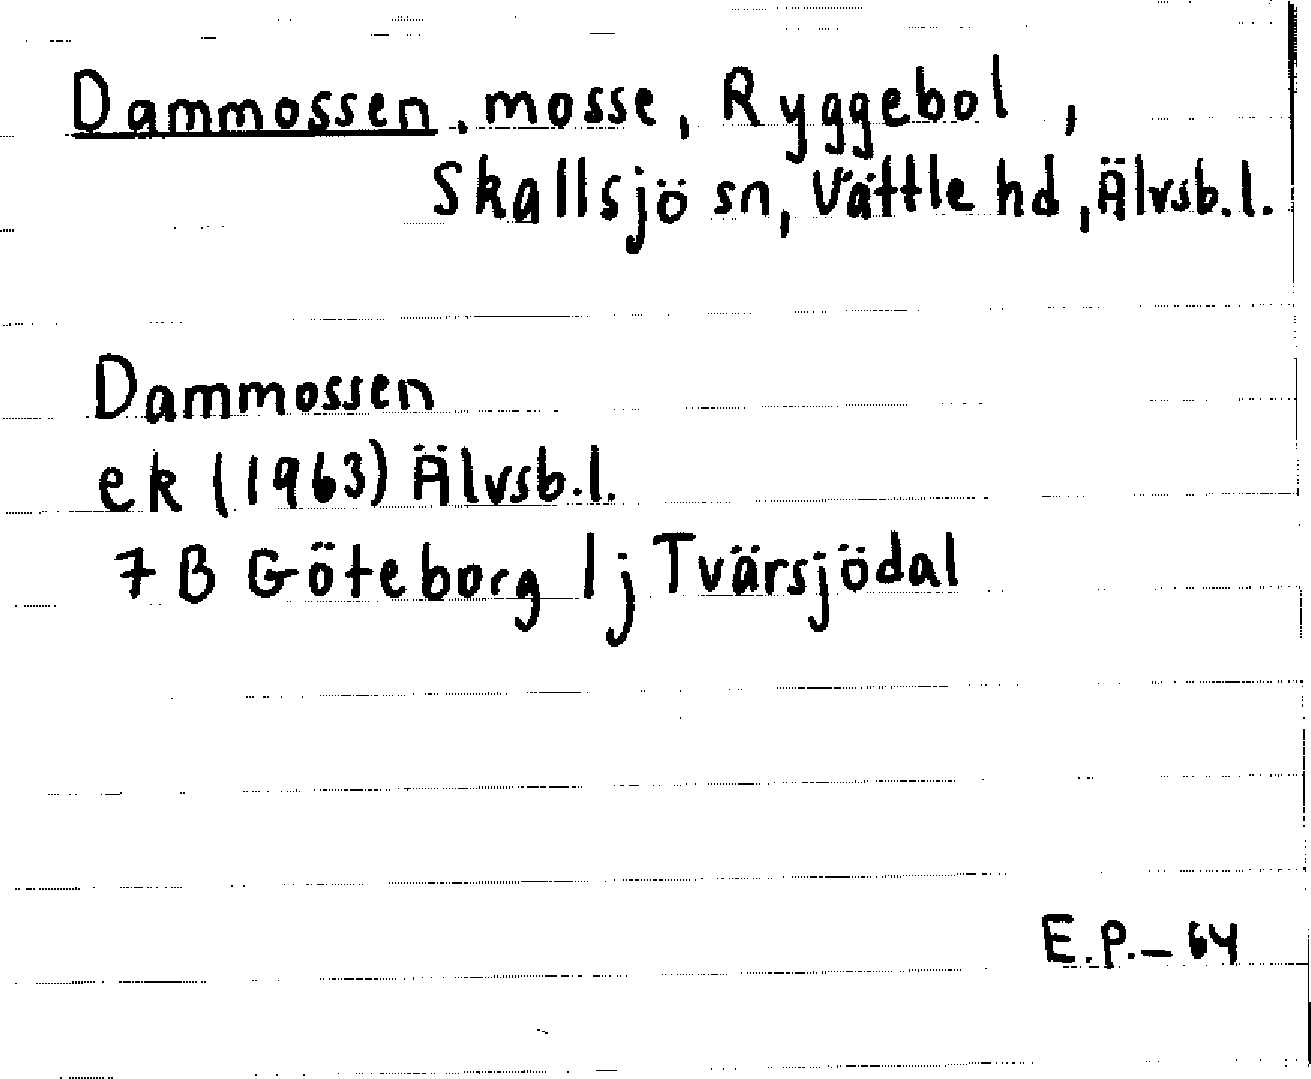 Dammossen, mosse, Ryggebol,
Skallsjö sn, Vättle hd, Älvsb.l.
Dammossen
ek (1963) Älvsb.l.
7 B Göteborg 1j Tvärsjödal
E.P.– 64